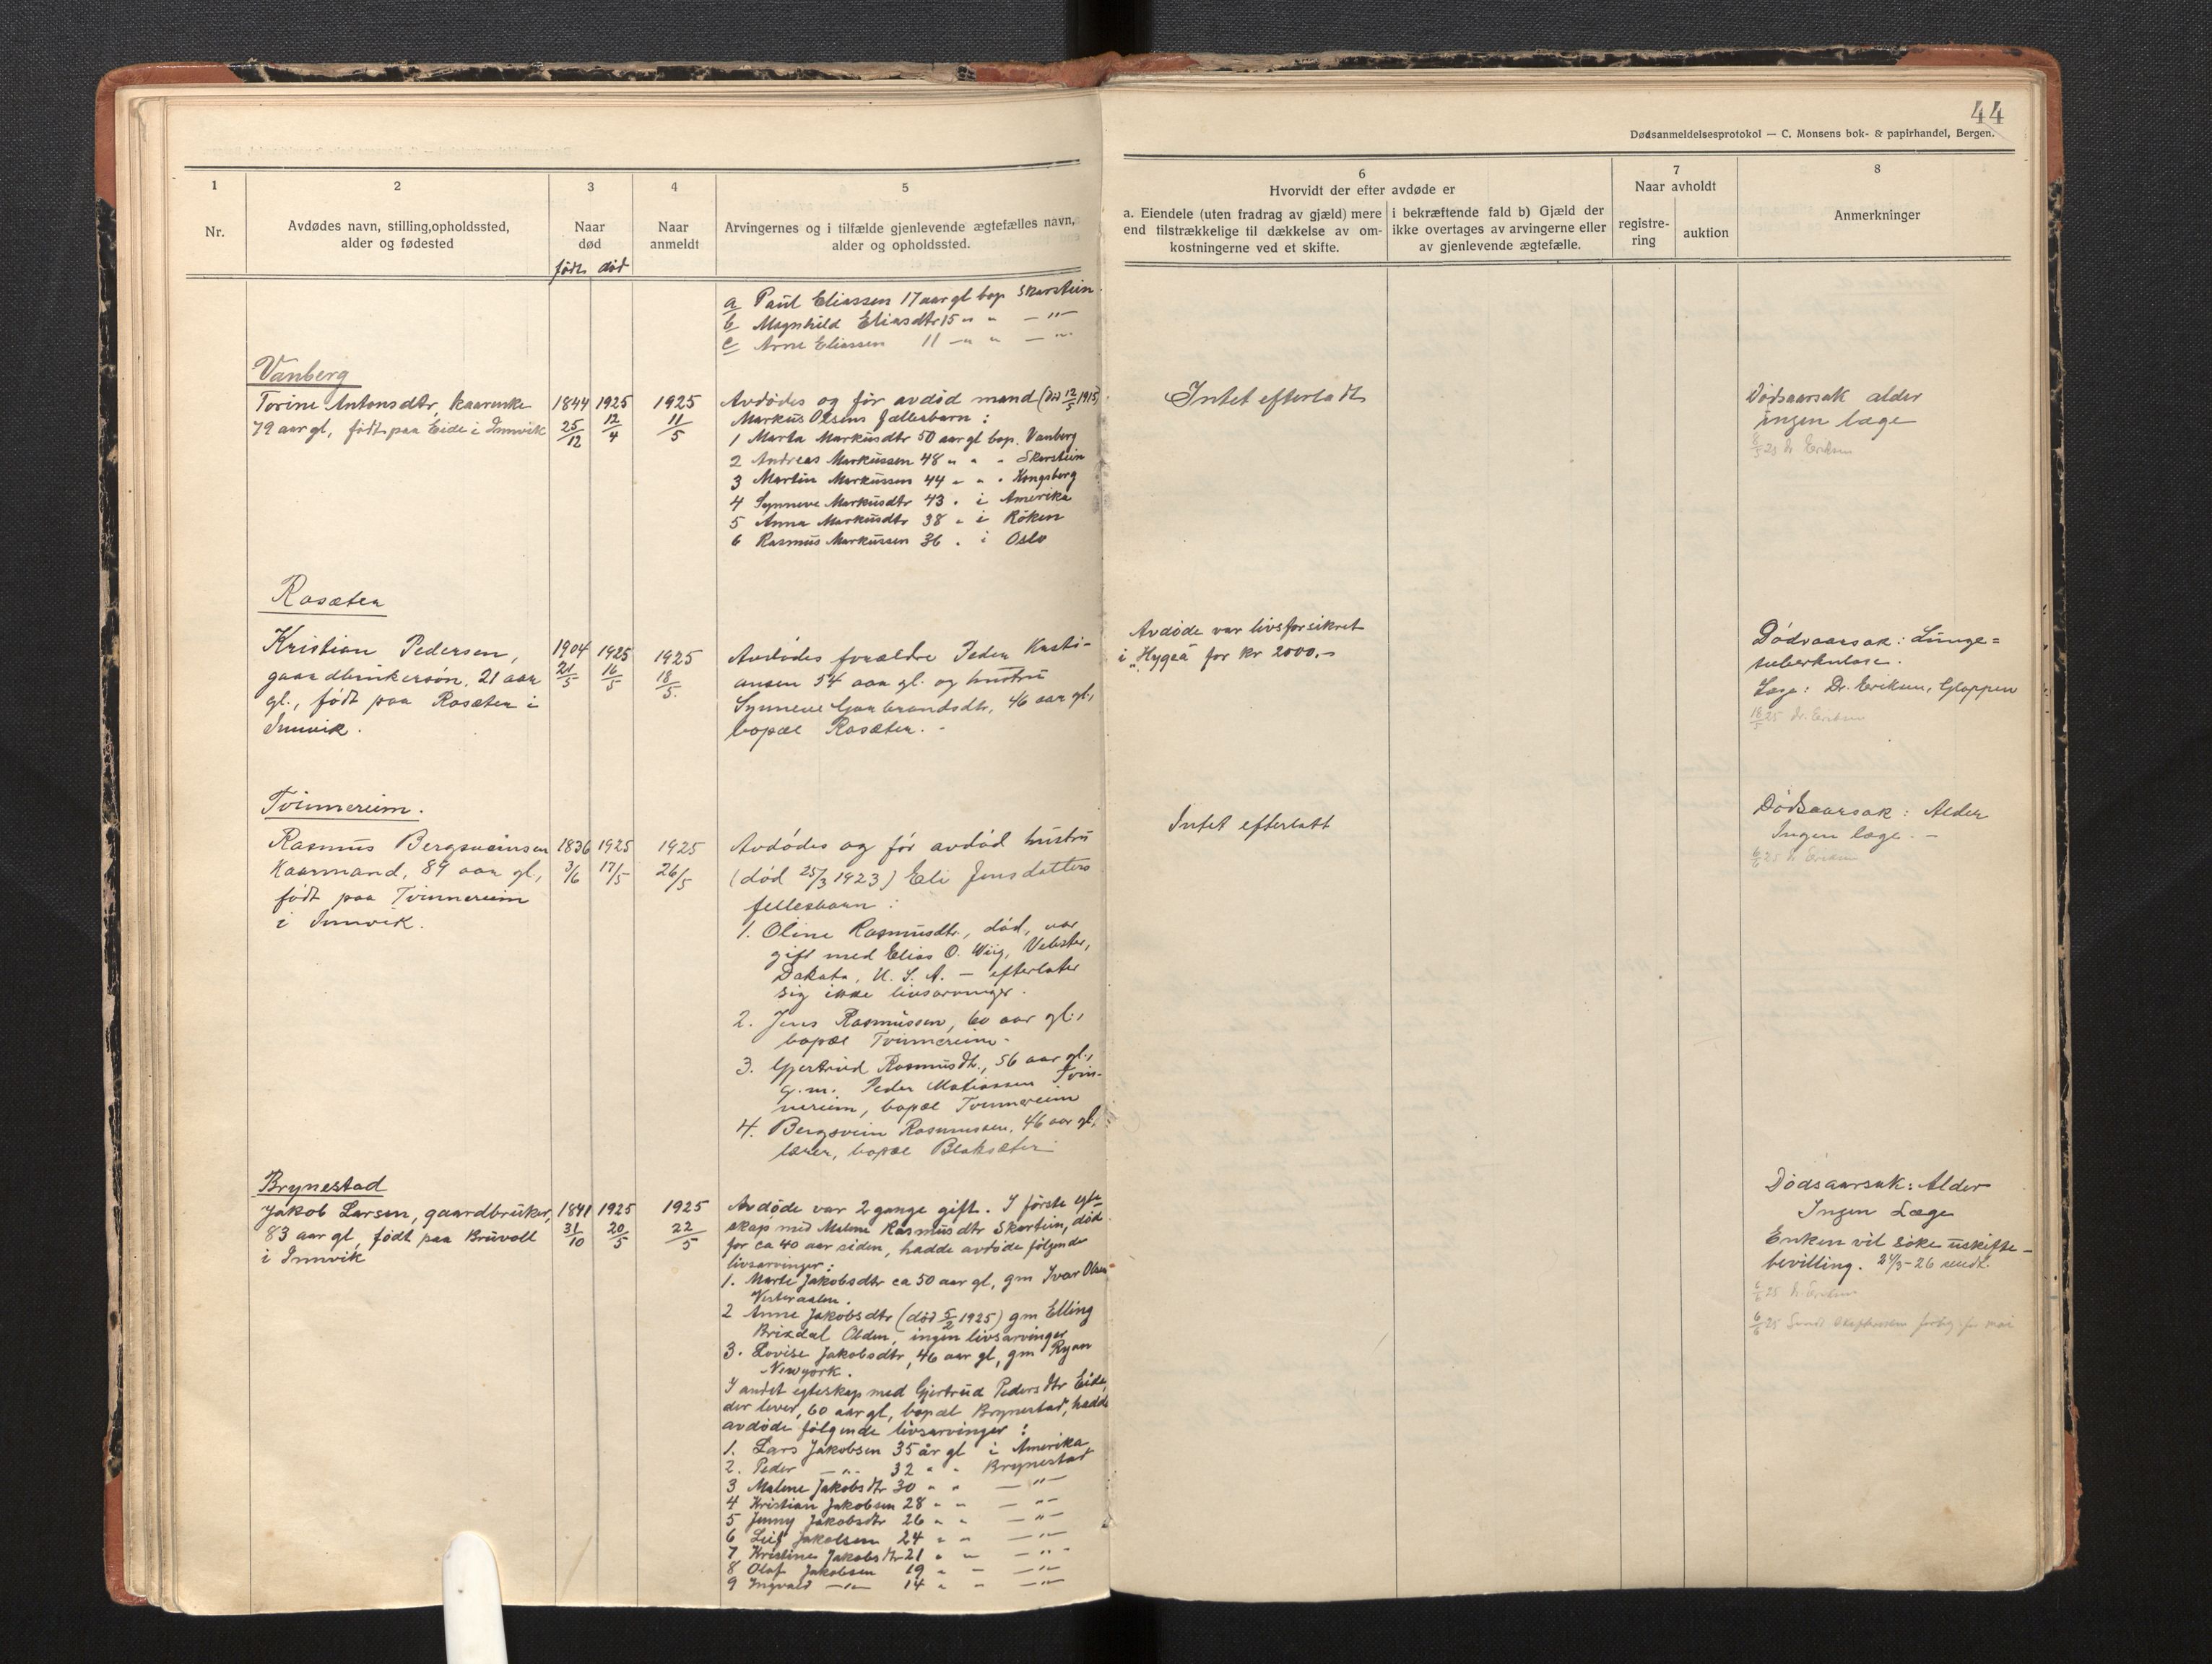 44
Dødsanmeldelsesprotokol — C. Monsens bok- & papirhandel, Bergen.
1
Nr.
2
Avdødes navn, stilling, opholdssted,
alder og fødested
3
Naar
død
født død
4
Naar
anmeldt
5
Arvingernes og i tilfælde gjenlevende ægtefælles navn,
alder og opholdssted.
6
Hvorvidt der efter avdøde er
a. Eiendele (uten fradrag av gjæld) mere
end tilstrækkelige til dækkelse av om-
kostningerne ved et skifte.
i bekræftende fald b) Gjæld der
ikke overtages av arvingerne eller
av gjenlevende ægtefælle.
7
Naar avholdt
registre-
ring
auktion
8
Anmerkninger
a Paul Eliassen 17 aar gl bop Skarstein
b Magnhild Eliasdtr 15 " " — " —
c Arne Eliassen 11 — " " — " —
Vanberg
Torine Antonsdtr, kaarenke
79 aar gl, født paa Eide i Innvik
1844 25/12
1925 12/4
1925 11/5
Avdødes og før avdød mand (død 12/5 1915)
Markus Olsens fællesbarn :
1 Marta Markusdtr 50 aar gl bop. Vanberg
2 Andreas Markussen 48 " " " Skarstein
3 Martin Markussen 44 " " " Kongsberg
4 Synneve Markusdtr 43 " i Amerika
5 Anna Markusdtr 38 " i Röken
6 Rasmus Markussen 36 " i Oslo
Intet efterladt
Dødsaarsak alder
ingen læge
Rosæter
Kristian Pedersen,
gaardbrukersøn, 21 aar
gl., født paa Rosæter i
Innvik.
1904 21/5
1925 16/5
1925 18/5.
Avdødes forældre Peder Kristi-
ansen 54 aar gl. og hustru
Synneve Garbrandsdtr, 46 aar gl.,
bopæl Rosæter. -
Avdøde var livsforsikret
i "Hygea" for kr 2000.-
Dødsaarsak: Lunge=
tuberkulose.
Læge: Dr. Eriksen, Gloppen
18/5 25 Dr. Eriksen
Tvinnereim.
Rasmus Bergsveinsen
Kaarmand, 89 aar gl.,
født paa Tvinnereim
i Innvik.
1836 3/6
1925 17/5
1925 26/5
Avdødes og før avdød hustru
(død 25/3 1923) Eli Jensdatters
fellesbarn :
1. Oline Rasmusdtr., død, var
gift med Elias O. Wiig, Vebster,
Dakota, U. S. A. — efterlater
sig ikke livsarvinger.
2. Jens Rasmussen, 60 aar gl.,
bopæl Tvinnereim.
3. Gjertrud Rasmusdt., 56 aar gl.,
g.m. Peder Matiassen Tvin-
nereim, bopæl Tvinnereim
4. Bergsvein Rasmussen, 46 aar gl,
lærer, bopæl Blaksæter
Intet efterlatt
Dødsaarsak: Alder
Ingen læge. —
Brynestad
Jakob Larsen, gaardbruker,
83 aar gl, født paa Bruvoll
i Innvik
1841 31/10
1925 20/5
1925 22/5
Avdøde var 2 gange gift. I første egte-
skap med Malene Rasmusdtr Skarstein, død
for ca 40 aar siden, hadde avdøde følgende
livsarvinger:
1. Marte Jakobsdtr ca 50 aar gl, gm Ivar Olsen
Vesteraalen.
2 Anne Jakobsdtr (død 5/2 1925) gm Elling
Brixdal Olden, ingen livsarvinger
3. Lovise Jakobsdtr, 46 aar gl, gm Ryan
Newyork.
I andet egteskap med Gjertrud Pedersdtr Eide,
der lever, 60 aar gl, bopæl Brynestad, hadde
avdøde følgende livsarvinger :
1. Lars Jakobsen 35 år gl i Amerika
2. Peder — " — 32 " " Brynestad
3 Malene Jakobsdtr 30 " " — " —
4 Kristian Jakobsen 28 " " — " —
5 Jenny Jakobsdtr 26 " " — " —
6 Leif Jakobsen 24 " " — " —
7 Kristine Jakobsdtr 21 " " — " —
8 Olaf Jakobsen 19 " " — " —
9 Ingvald — " — 14 " " — " —
Dødsaarsak: Alder
Ingen Læge
Enken vil søke uskifte-
bevilling.